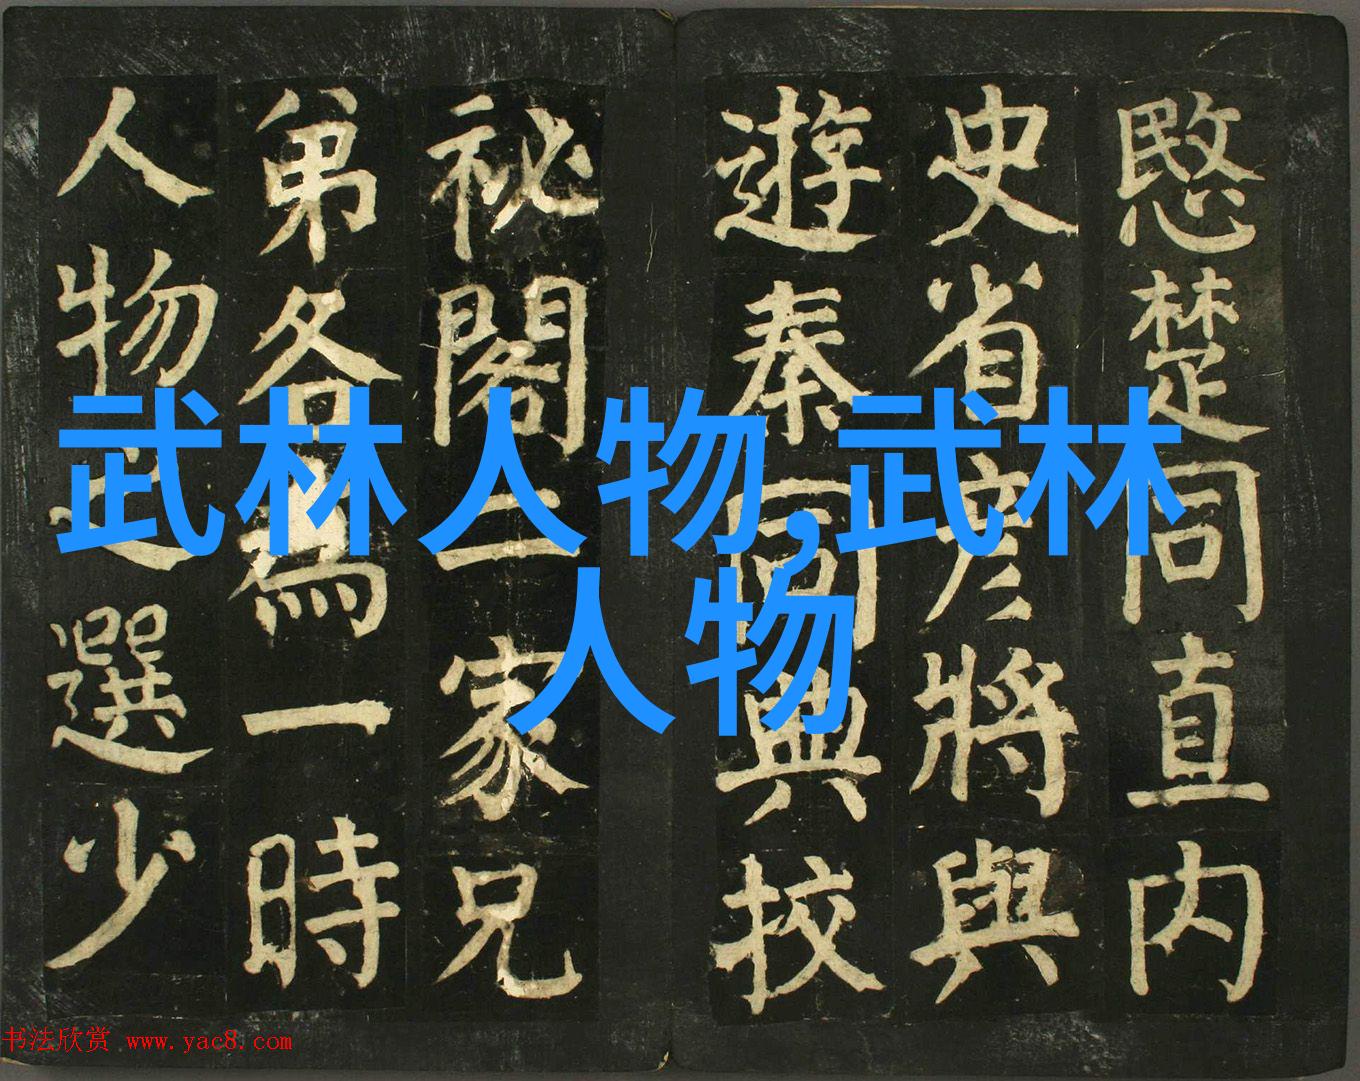 愍楚同直内
史省彦將與
遊秦同典校
祕閣二家兄
弟各為一時
人物之選少
武林人物,武林
人物
书法欣赏 www.yac8.com